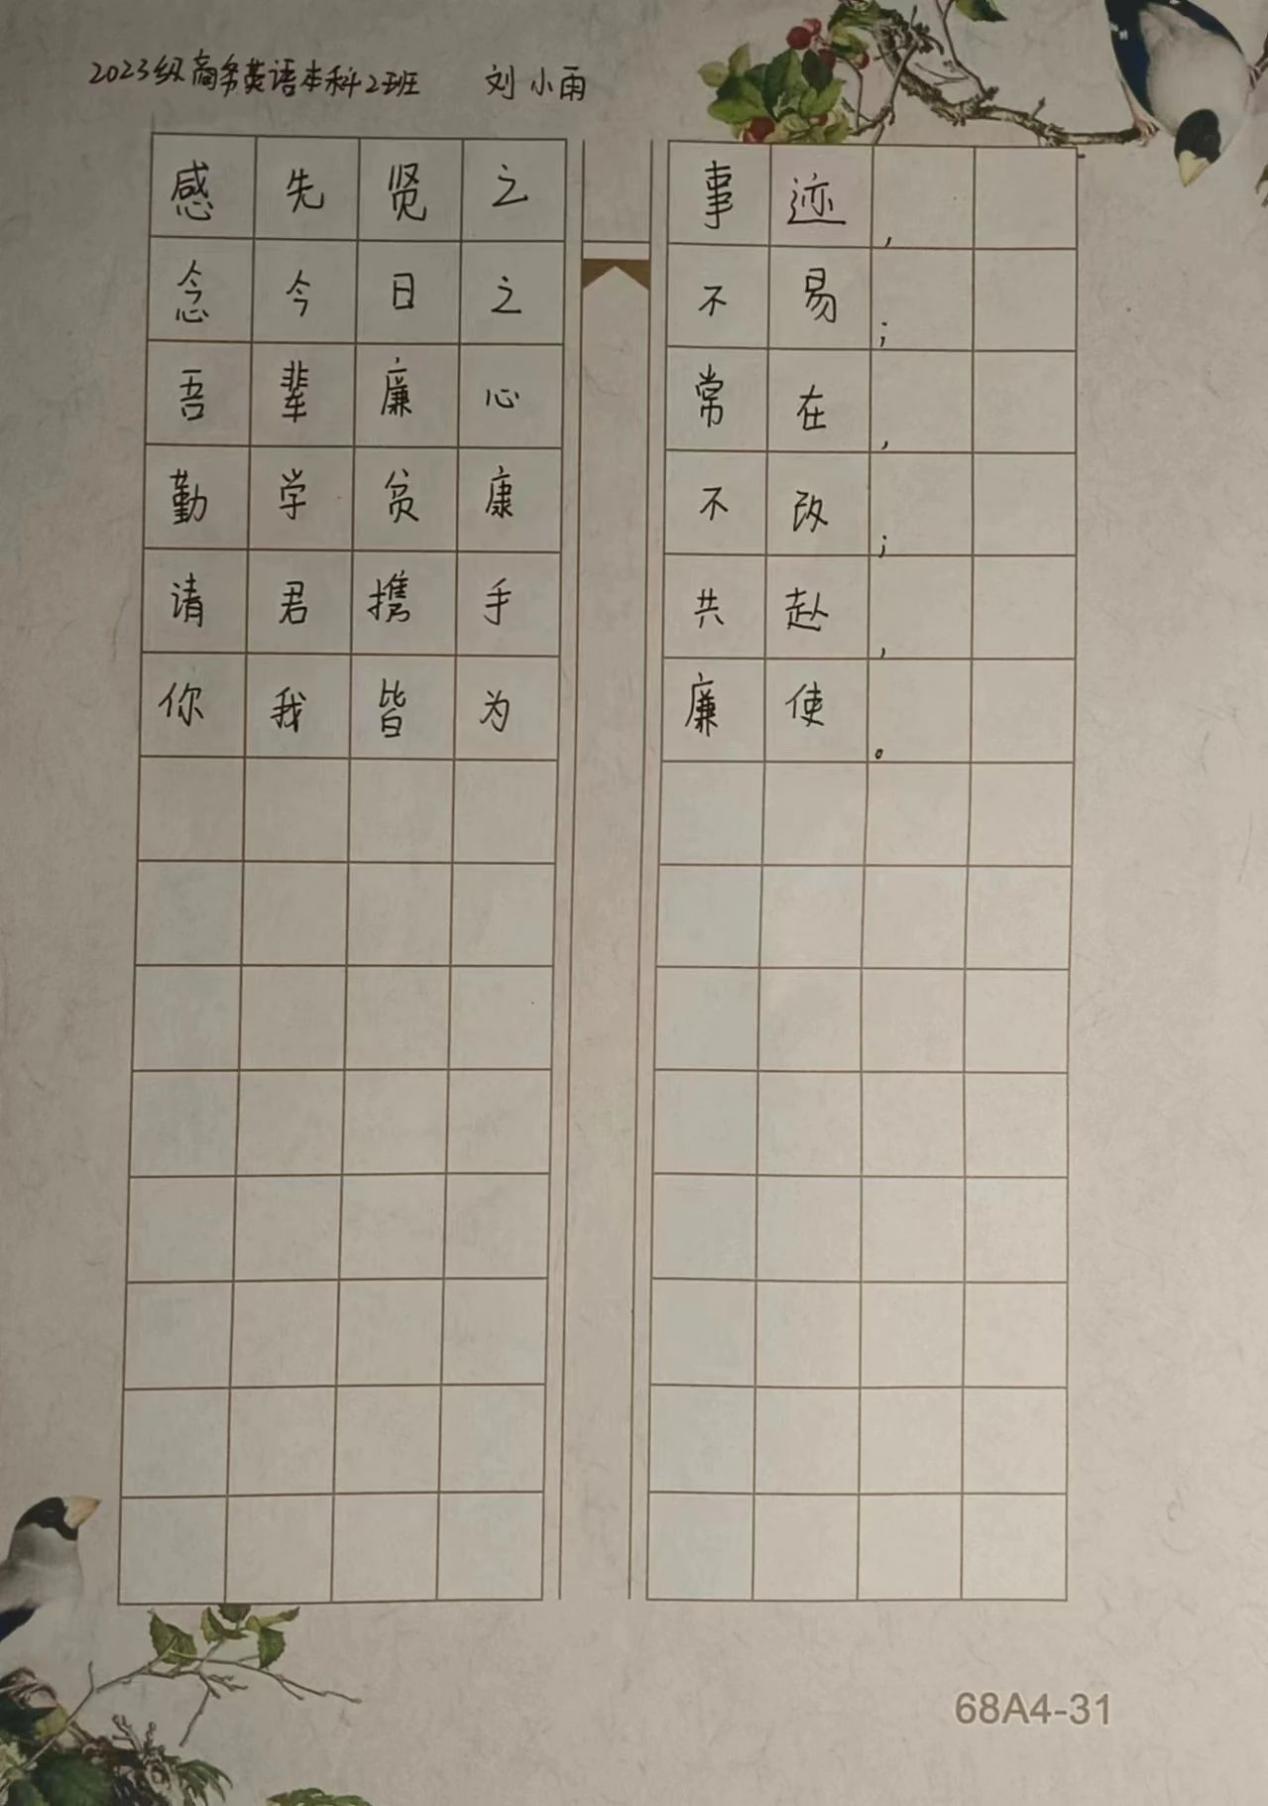 2023级商务英语本科2班 刘小雨
感先贤之事迹，
念今日之不易；
吾辈廉心常在，
勤学贫康不改；
请君携手共赴，
你我皆为廉使。
68A4-31